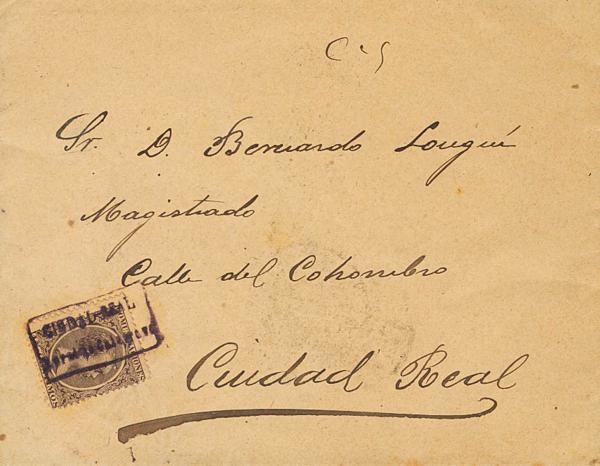 Sr. D. Bernardo Longué
Magistrado
Calle del Cohombro
CIUDAD-REAL
Ciudad Real